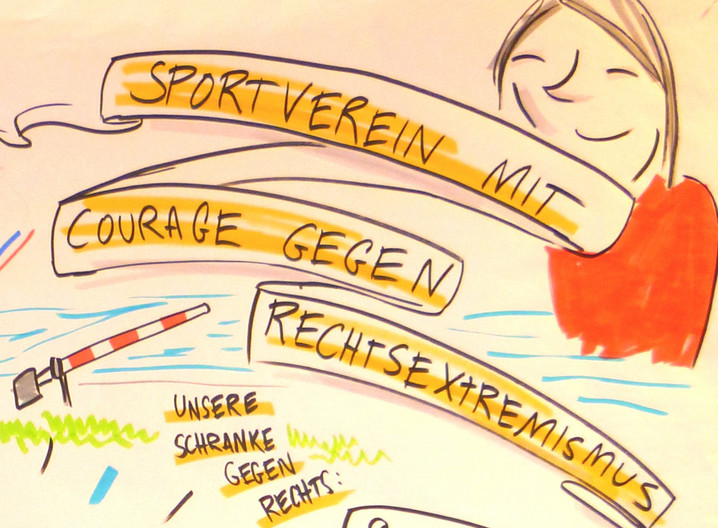 SPORTVEREIN MIT
COURAGE GEGEN
RECHTSEXTREMISMUS
UNSERE
SCHRANKE
GEGEN
RECHTS: